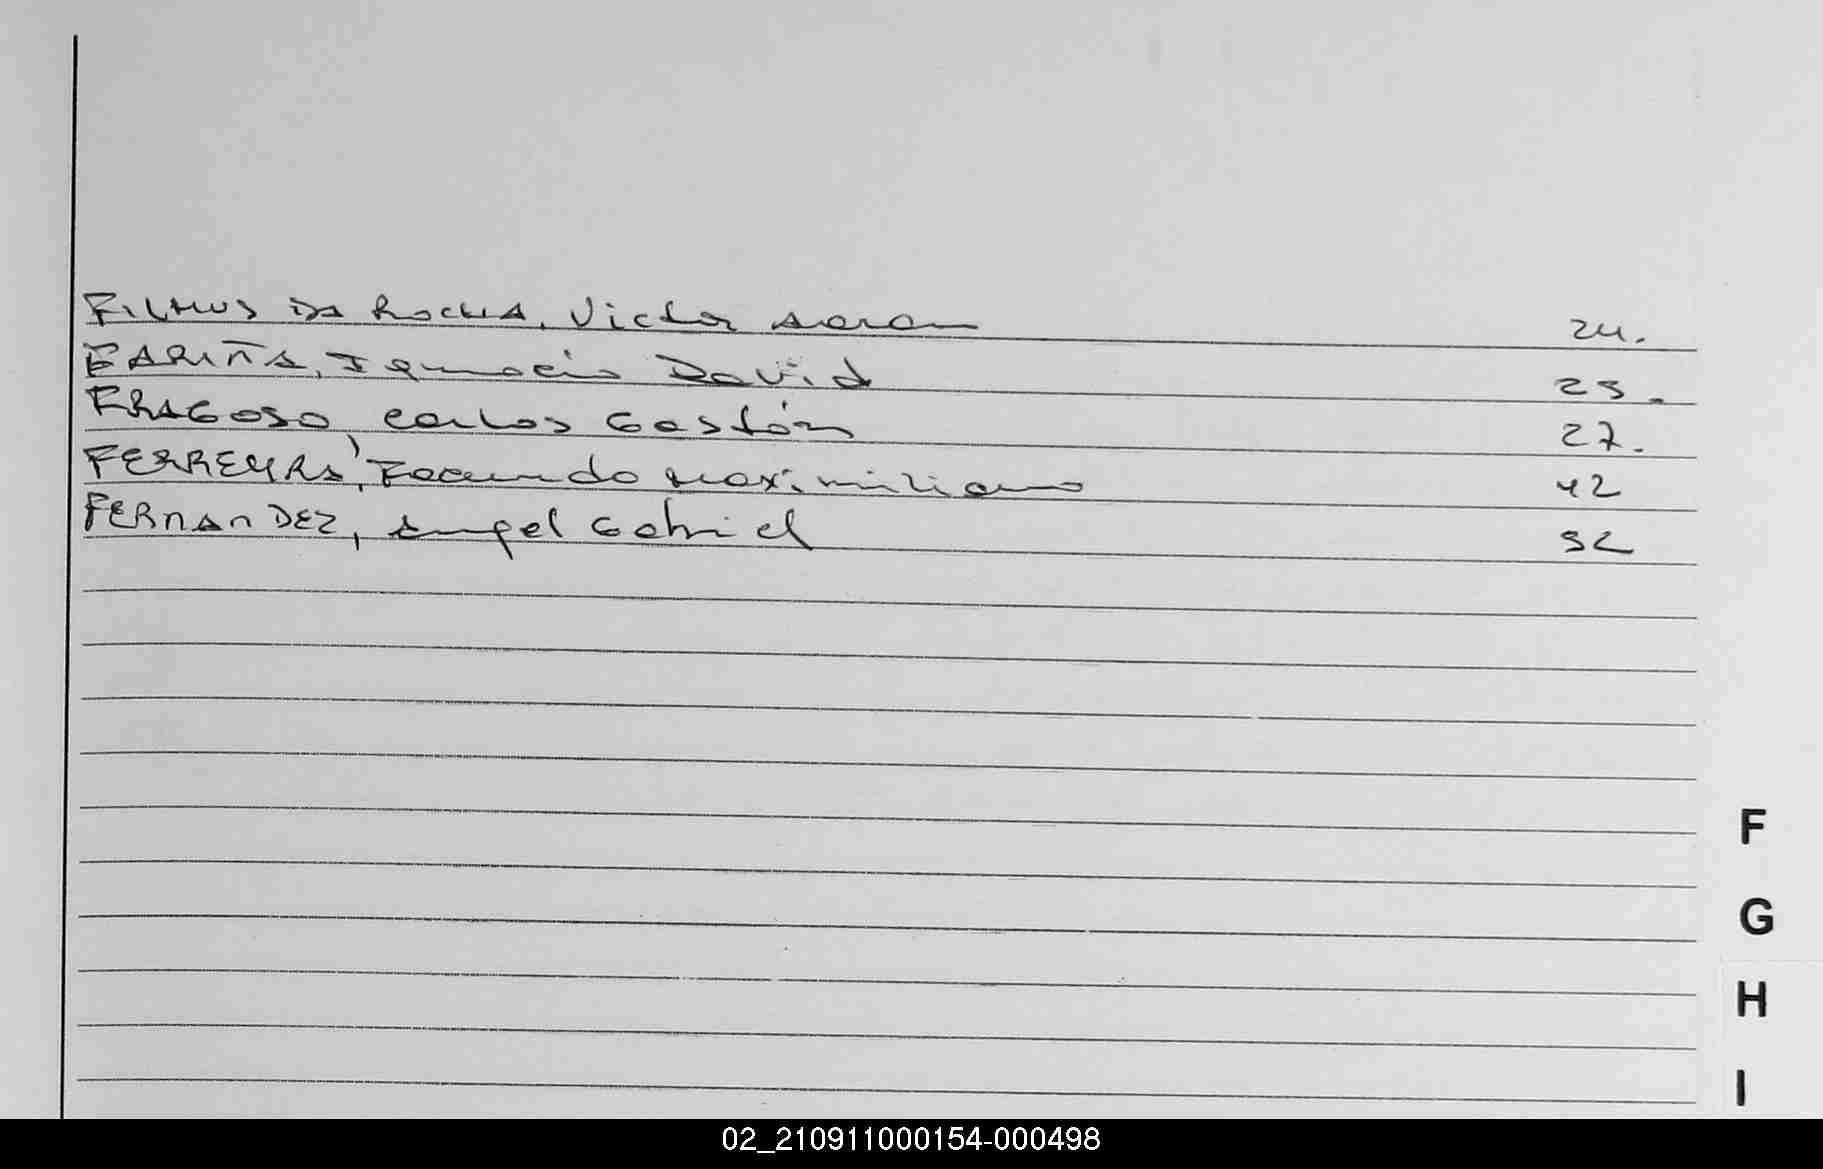 FILHUS DA ROCHA, Victor Aaron 24.
FARIÑA, Ignacio David 25.
FRAGOSO, Carlos Gastón 27.
FERREYRA, Facundo Maximiliano 42
FERNANDEZ, Angel Gabriel 52
F
G
H
I
02_210911000154-000498